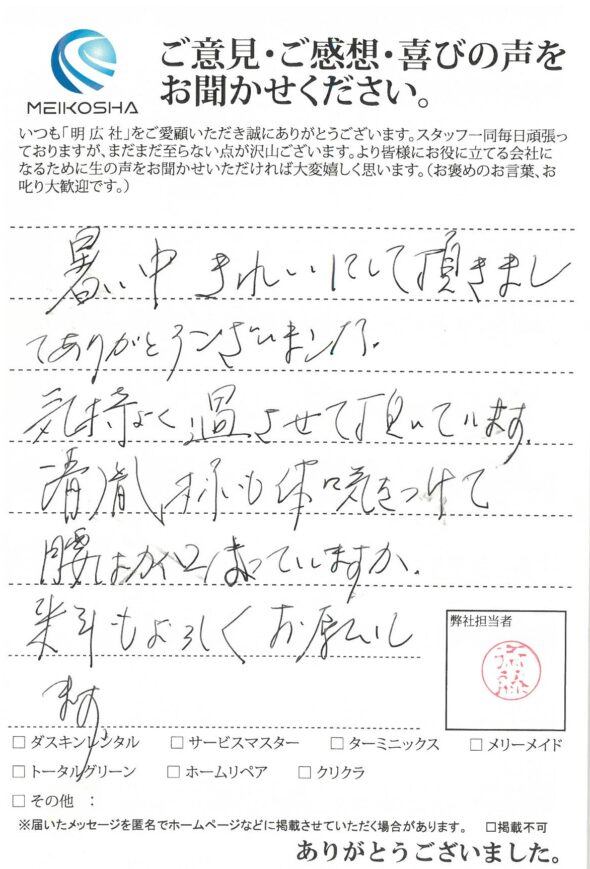 MEIKOSHA
ご意見・ご感想・喜びの声を
お聞かせください。
いつも「明広社」をご愛顧いただき誠にありがとうございます。スタッフ一同毎日頑張っ
ておりますが、まだまだ至らない点が沢山ございます。より皆様にお役に立てる会社に
なるために生の声をお聞かせいただければ大変嬉しく思います。(お褒めのお言葉、お
叱り大歓迎です。)
暑い中 きれいにして頂きまし
てありがとうございました.
気持よく過させて頂いています.
様も体 気をつけて
腰は
まっていますか.
来年もよろしくお願いし
ます
弊社担当者
□ ダスキンレンタル □ サービスマスター □ ターミニックス □ メリーメイド
□ トータルグリーン □ ホームリペア □ クリクラ
□ その他 :
※届いたメッセージを匿名でホームページなどに掲載させていただく場合があります。 □掲載不可
ありがとうございました。